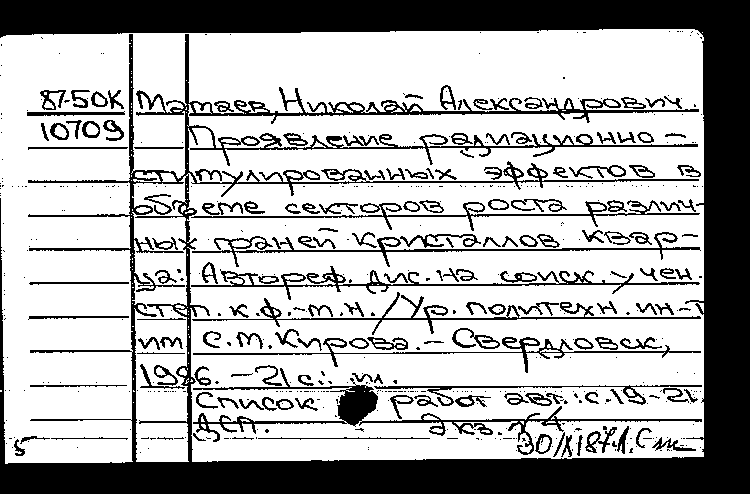 87-50К Матаев, Николай Александрович.
10709 Проявление радиационно-
стимулированных эффектов в
объеме секторов роста различ-
ных граней кристаллов квар-
ца: Автореф. дис. на соиск. учен.
степ. к.ф.-м.н. / Ур. политехн. ин-т
им. С.М. Кирова. - Свердловск,
1986. - 21 с.: ил.
Список работ авт.: с. 19-21.
ДСП. Экз.
5